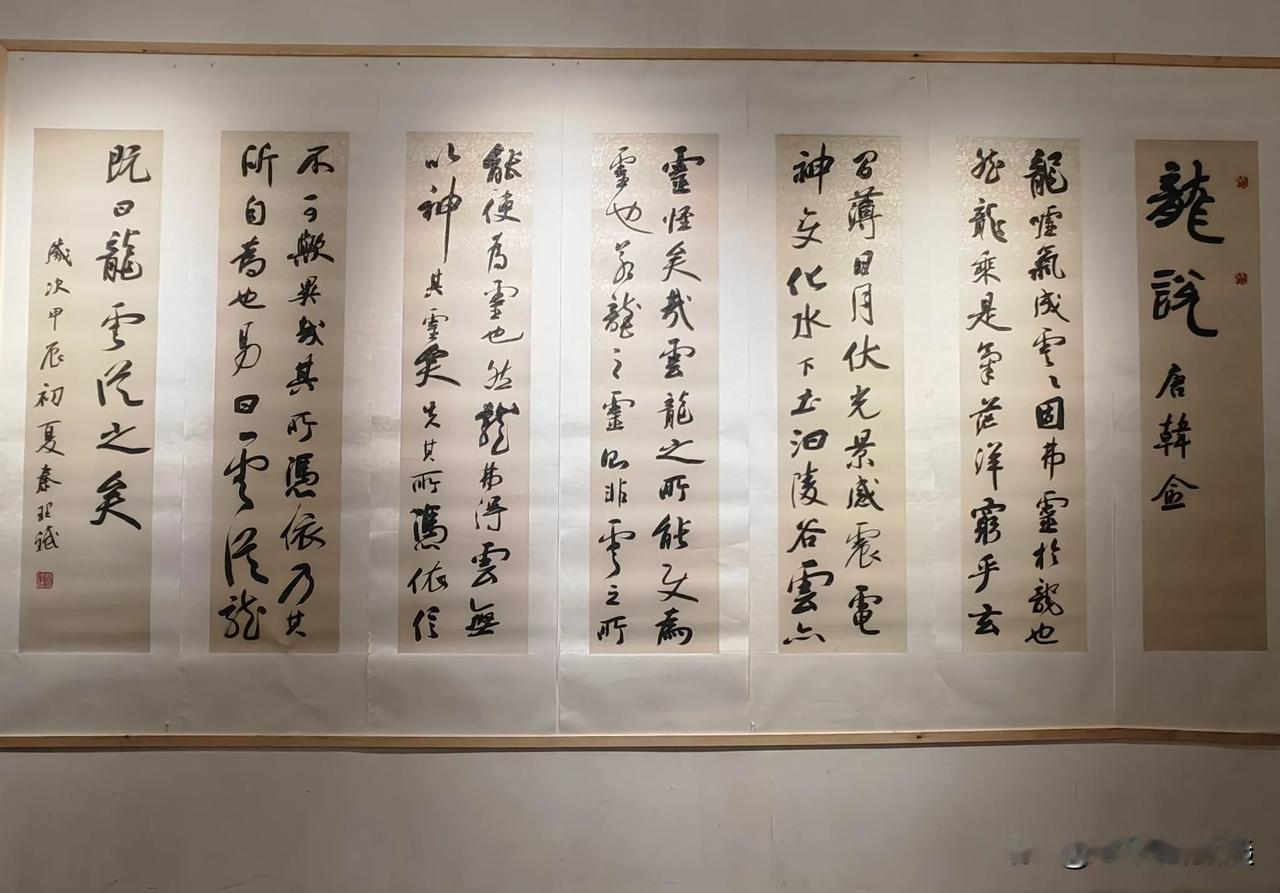 龍說 唐韓愈
龍噓氣成雲〻固弗靈於龍也
然龍乘是氣茫洋窮乎玄
間薄日月伏光景感震電
神變化水下土汩陵谷雲亦
靈怪矣哉雲龍之所能使為
靈也若龍之靈則非雲之所
能使為靈也然龍弗得雲無
以神其靈矣失其所憑依信
不可歟異哉其所憑依乃其
所自為也易曰雲從龍
既曰龍雲從之矣
歲次甲辰初夏秦